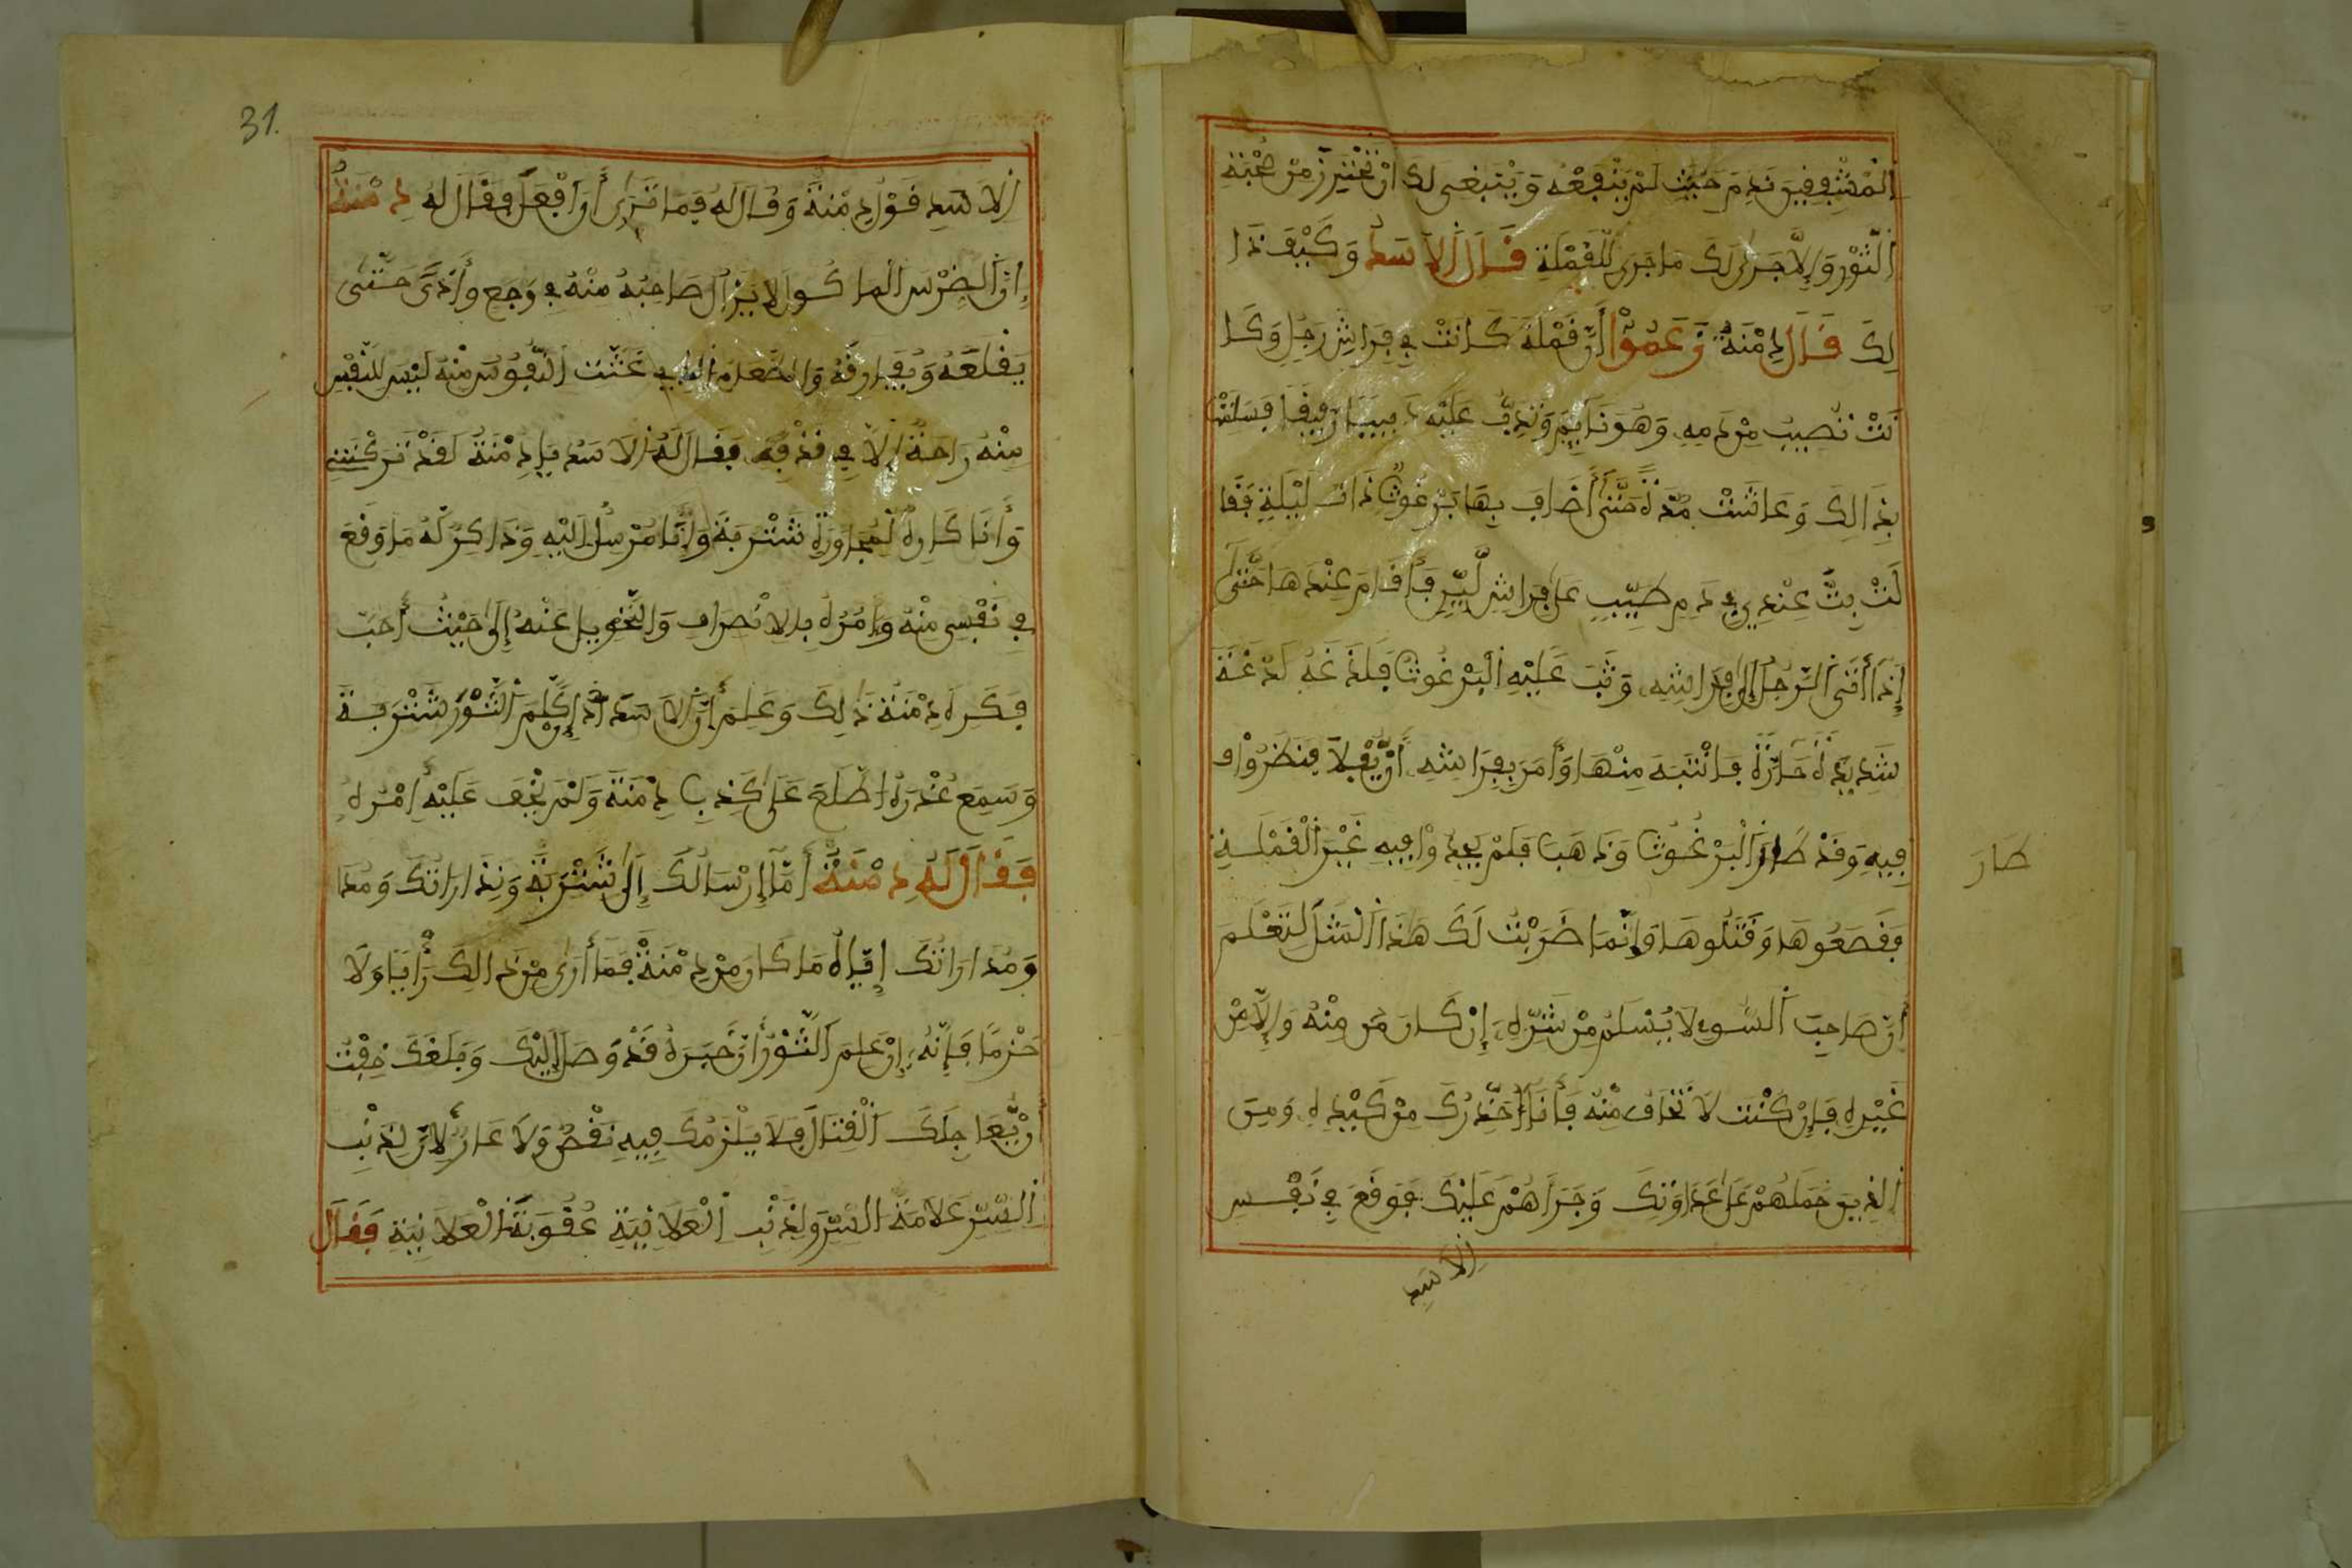 المشفقين ندم حيث لم ينفعه وينبغي لك ان تحترز من صحبة
الثور وإلا جرى لك ما جرى للقملة قال الاسد وكيف ذا
لك قال دمنة زعموا أن قملة كانت في فراش رجل وكا
نت تصيب من دمه وهو نايم وتدب عليه دبيبا رفيقا
بذالك وعاشت مدة حتى أضاف بها برغوث ذات ليلة فقا
لت بت عندي في دم طيب على فراش لين فأقام عندها حتى
إذا أتى الرجل إلى فراشه وثب عليه البرغوث فلدغه لدغة
شديدة حارة فانتبه منها وأمر بفراشه أن يفلا فنظروا
فيه وقد طار البرغوث وذهب فلم يجدوا فيه غير القملة
طار
فقصعوها وقتلوها وإنما ضربت لك هذا المثل لتعلم
أن صاحب السوء لا يسلم من شره إن كان من منه وإلا من
غيره فإن كنت لا تخاف منه فأنا أحذرك من كيده ومن
الذين حملهم على عداوتك وجرأهم عليك فوقع في نفس
الاسد
31.
الاسد قول دمنة وقال له فما ترى أن افعل فقال له دمنة
إن الضرس الماكول لا يزال صاحبه منه في وجع وأذى حتى
يقلعه ويفارقه والطعام الذي غثت النفوس منه ليس للنفس
منه راحة إلا في قذفه فقال له الاسد يا دمنة لقد تركتني
وأنا كاره لمجاورة شتربة وإنا مرسل إليه وذاكر له ما وقع
في نفسي منه وءامره بالانصراف والتحويل عنه إلى حيث أحب
فكره دمنة ذلك وعلم أن الاسد إذا كلم الثور شتربة
وسمع عذره اطلع على كذب دمنة ولم يخف عليه امره
فقال له دمنة أما إرسالك إلى شتربة ونذاراتك ومدا
ومداراتك إياه ما كان من دمنة فما أرى من ذالك رأيا ولا
حزما فإنه إن علم الثور أن خبره قد وصل إليك وبلغك خفت
أن يعاجلك القتال فلا يلزمك فيه نقص ولا عار لان لذنب
السر علامة السر ولذنب العلانية عقوبة العلانية فقال